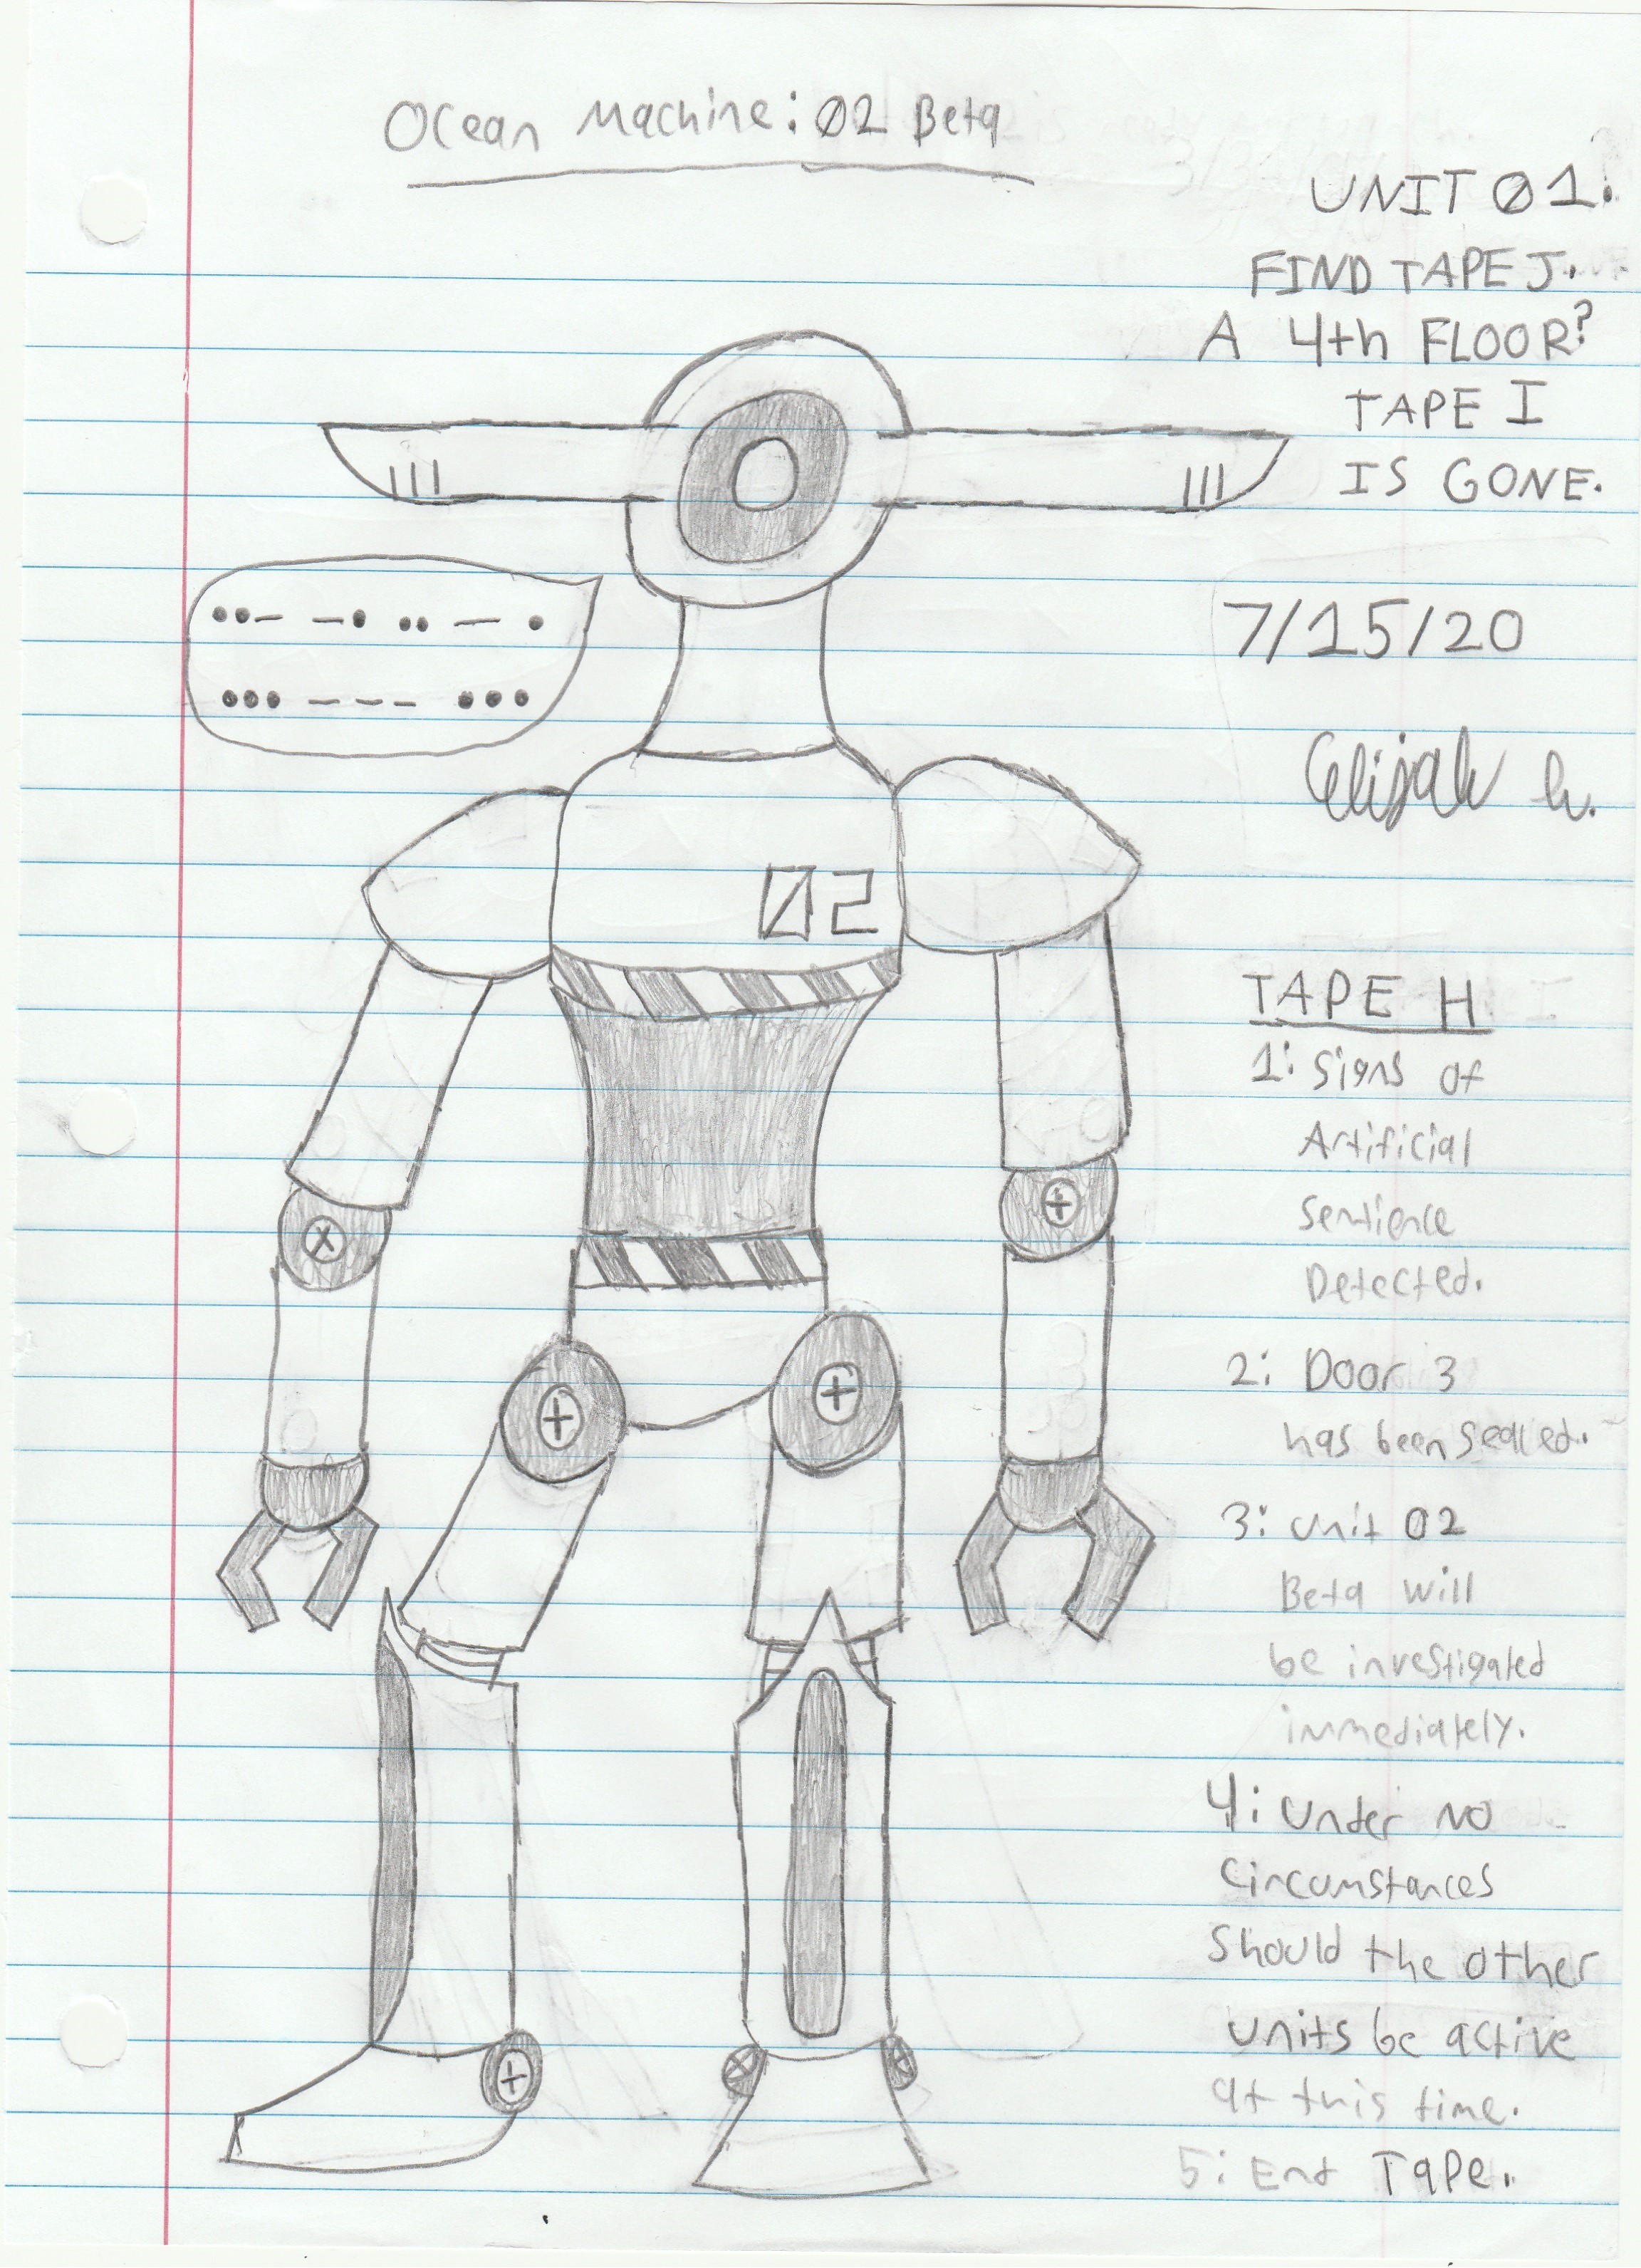 Ocean Machine: 02 Beta
UNIT 01:
FIND TAPE J.
A 4th FLOOR?
TAPE I
IS GONE.
••– –• •• – •
••• – – – •••
7/15/20
Elijah h.
02
TAPE H
1: Signs of
Artificial
Sentience
Detected.
2: Door 3
has been sealed.
3: Unit 02
Beta will
be investigated
immediately.
4: Under NO
Circumstances
Should the other
units be active
at this time.
5: End Tape.